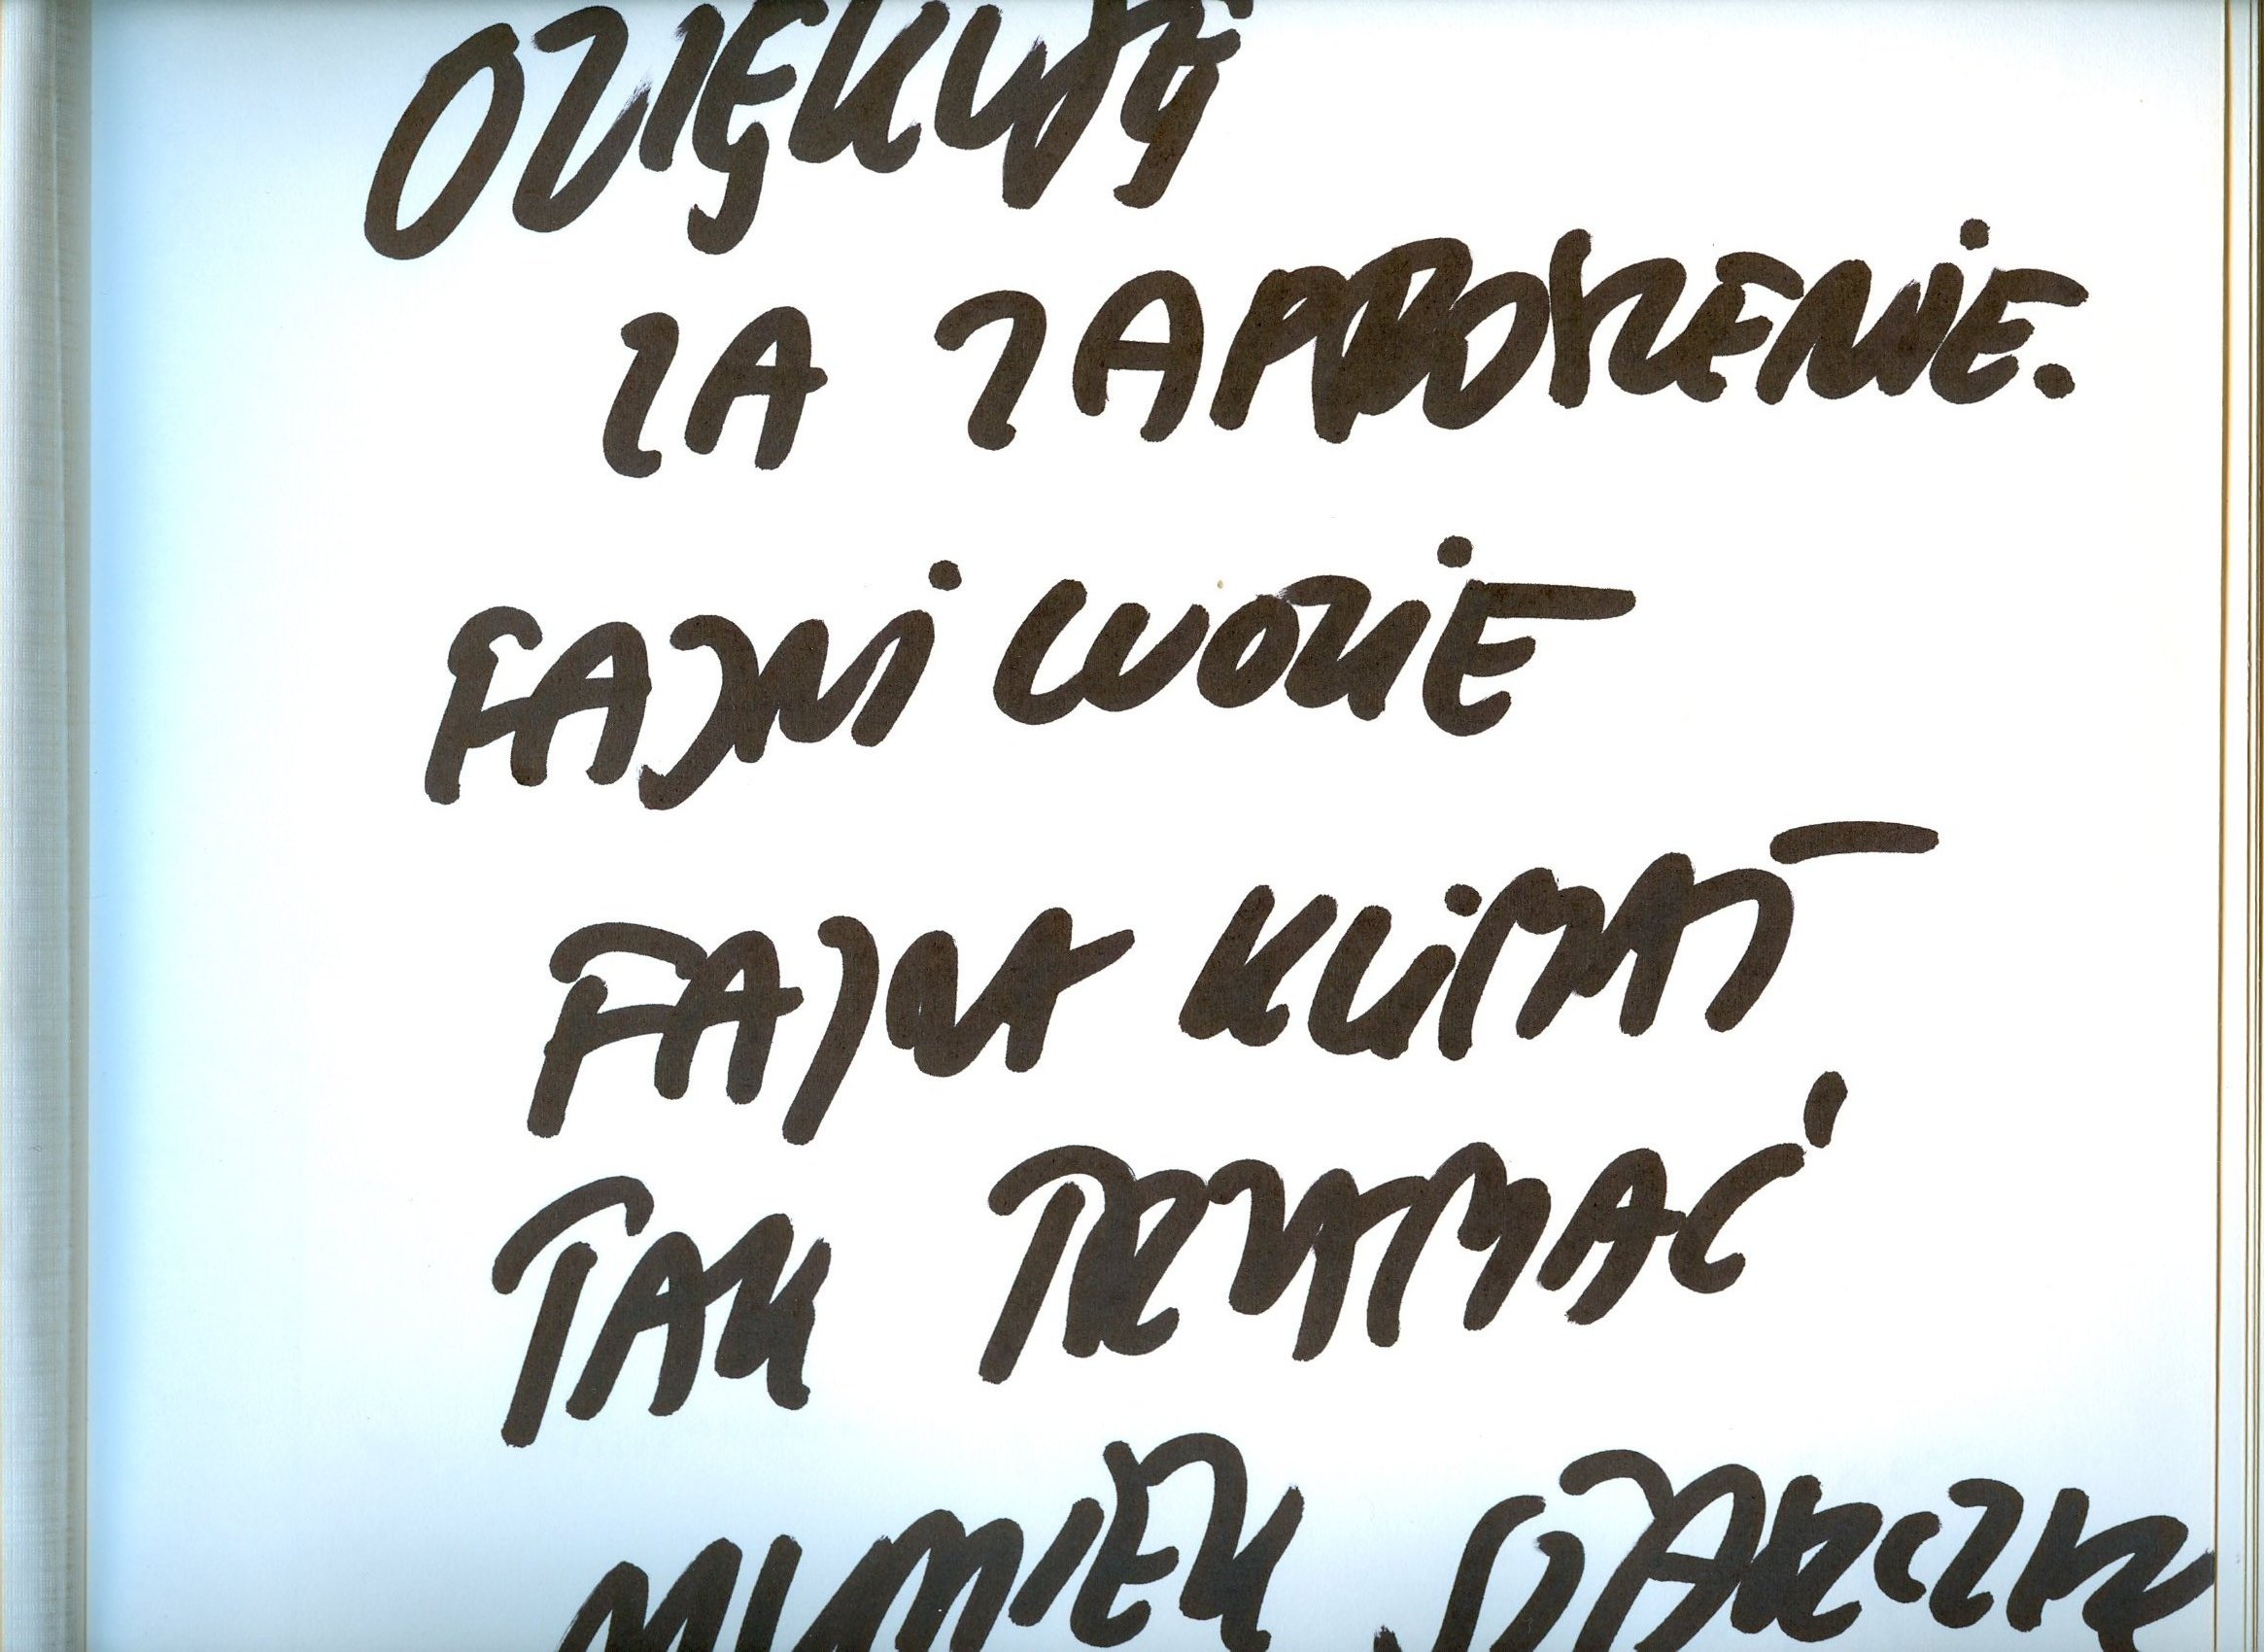 DZIĘKUJĘ
ZA ZAPROSZENIE.
FAJNI LUDZIE
FAJNY KLIMAT
TAK TRZYMAĆ